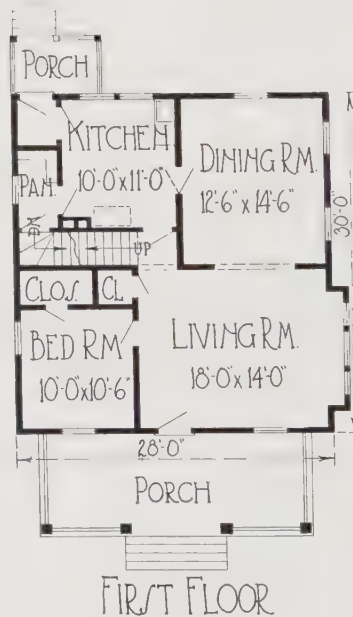 PORCH
KITCHEN
10'-0"x11'-0"
DINING RM.
12'-6" x 14'-6"
PAN.
DN
UP
30'-0"
CLOS.
CL
BED RM
10'-0"x10'-6"
LIVING RM.
18'-0"x14'-0"
28'-0"
PORCH
FIRST FLOOR